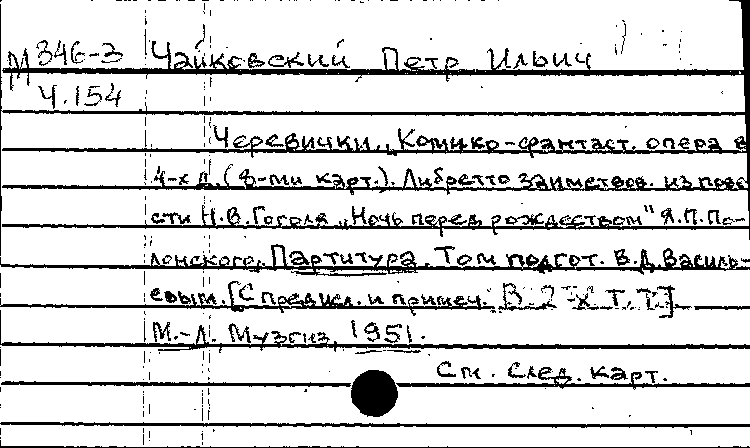 М 346-3 Чайковский, Петр Ильич
Ч.154
Черевички. Комико-фантаст. опера в
4-х д. (8-ми карт.). Либретто заимствов. из пове-
сти Н.В.Гоголя „Ночь перед рождеством" Я.П.По-
лонского. Партитура. Том подгот. В.Д.Василь-
евым. [С предисл. и примеч. В 2-х т. Т.]
М.-Л., Музгиз, 1951.
См. след. карт.